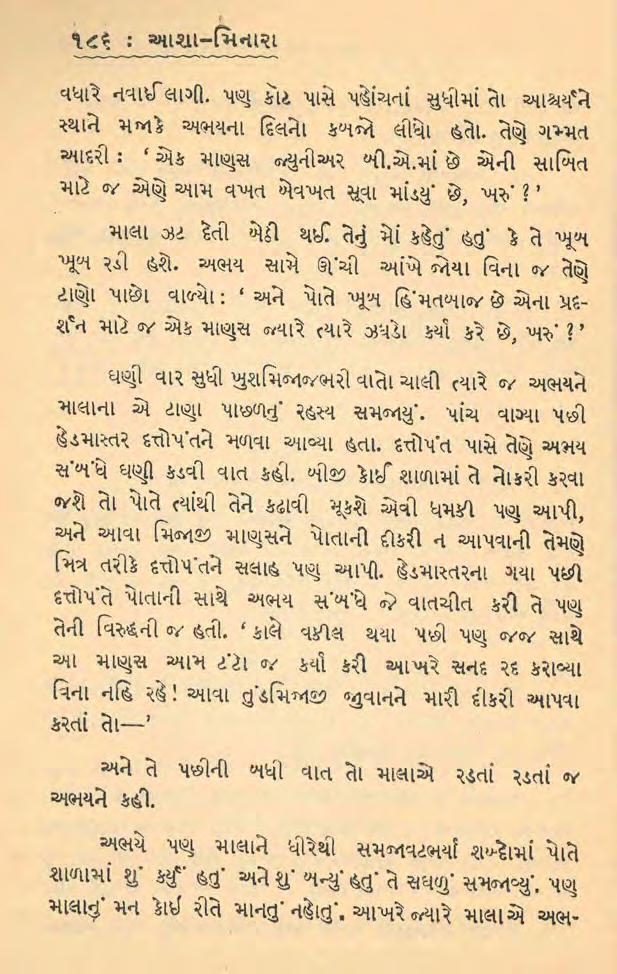 ૧૮૬ : આશા-મિનારા
વધારે નવાઈ લાગી. પણ કોટ પાસે પહોંચતાં સુધીમાં તો આશ્ચર્યને
સ્થાને મજાકે અભયના દિલનો કબજો લીધો હતો. તેણે ગમ્મત
આદરી : ‘ એક માણસ જ્યુનીઅર બી.એ.માં છે એની સાબિત
માટે જ એણે આમ વખત બેવખત સૂવા માંડયું છે, ખરું ? ’
માલા ઝટ દેતી બેઠી થઈ. તેનું મોં કહેતું હતું કે તે ખૂબ
ખૂબ રડી હશે. અભય સામે ઊંચી આંખે જોયા વિના જ તેણે
ટાણો પાછો વાળ્યો : ‘ અને પોતે ખૂબ હિંમતબાજ છે એના પ્રદ-
ર્શન માટે જ એક માણસ જ્યારે ત્યારે ઝઘડો કર્યા કરે છે, ખરું ? ’
ઘણી વાર સુધી ખુશમિજાજભરી વાતો ચાલી ત્યારે જ અભયને
માલાના એ ટાણા પાછળનું રહસ્ય સમજાયું. પાંચ વાગ્યા પછી
હેડમાસ્તર દત્તોપંતને મળવા આવ્યા હતા. દત્તોપંત પાસે તેણે અભય
સંબંધે ઘણી કડવી વાત કહી. બીજી કોઈ શાળામાં તે નોકરી કરવા
જશે તો પોતે ત્યાંથી તેને કઢાવી મૂકશે એવી ધમકી પણ આપી,
અને આવા મિજાજી માણસને પોતાની દીકરી ન આપવાની તેમણે
મિત્ર તરીકે દત્તોપંતને સલાહ પણ આપી. હેડમાસ્તરના ગયા પછી
દત્તોપંતે પોતાની સાથે અભય સંબંધે જે વાતચીત કરી તે પણ
તેની વિરુદ્ધની જ હતી. ‘ કાલે વકીલ થયા પછી પણ જજ સાથે
આ માણસ આમ ટંટો જ કર્યા કરી આખરે સનદ રદ કરાવ્યા
વિના નહિ રહે ! આવા તુંડમિજાજી જુવાનને મારી દીકરી આપવા
કરતાં તો—’
અને તે પછીની બધી વાત તો માલાએ રડતાં રડતાં જ
અભયને કહી.
અભયે પણ માલાને ધીરેથી સમજાવટભર્યા શબ્દોમાં પોતે
શાળામાં શું કર્યું હતું અને શું બન્યું હતું તે સઘળું સમજાવ્યું. પણ
માલાનું મન કોઈ રીતે માનતું નહોતું. આખરે જ્યારે માલાએ અભ-